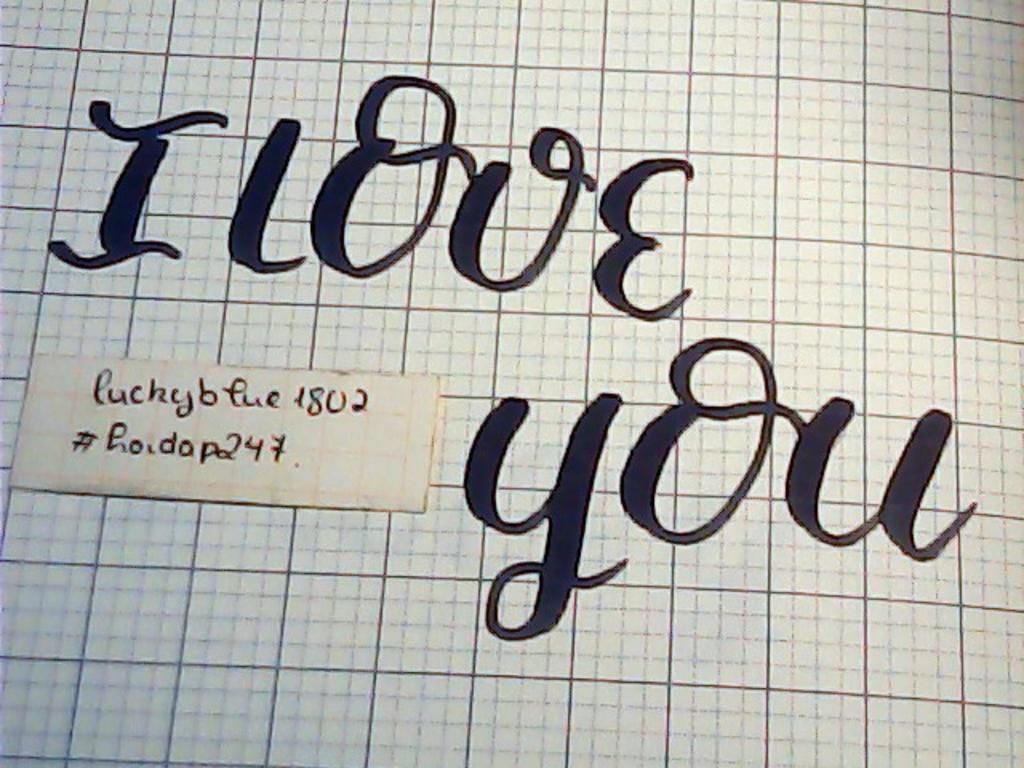 I love
you
luckyblue1802
#hoidap247.